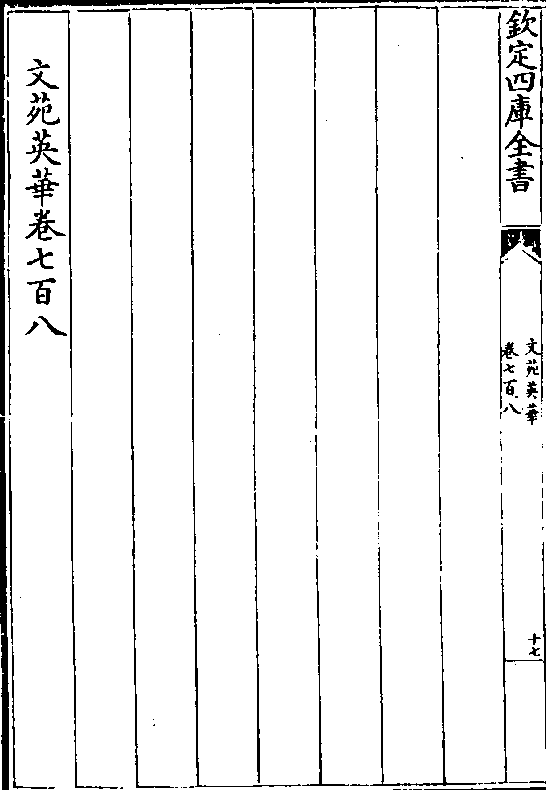 欽定四庫全書
文苑英華
卷七百八
十七
文苑英華卷七百八